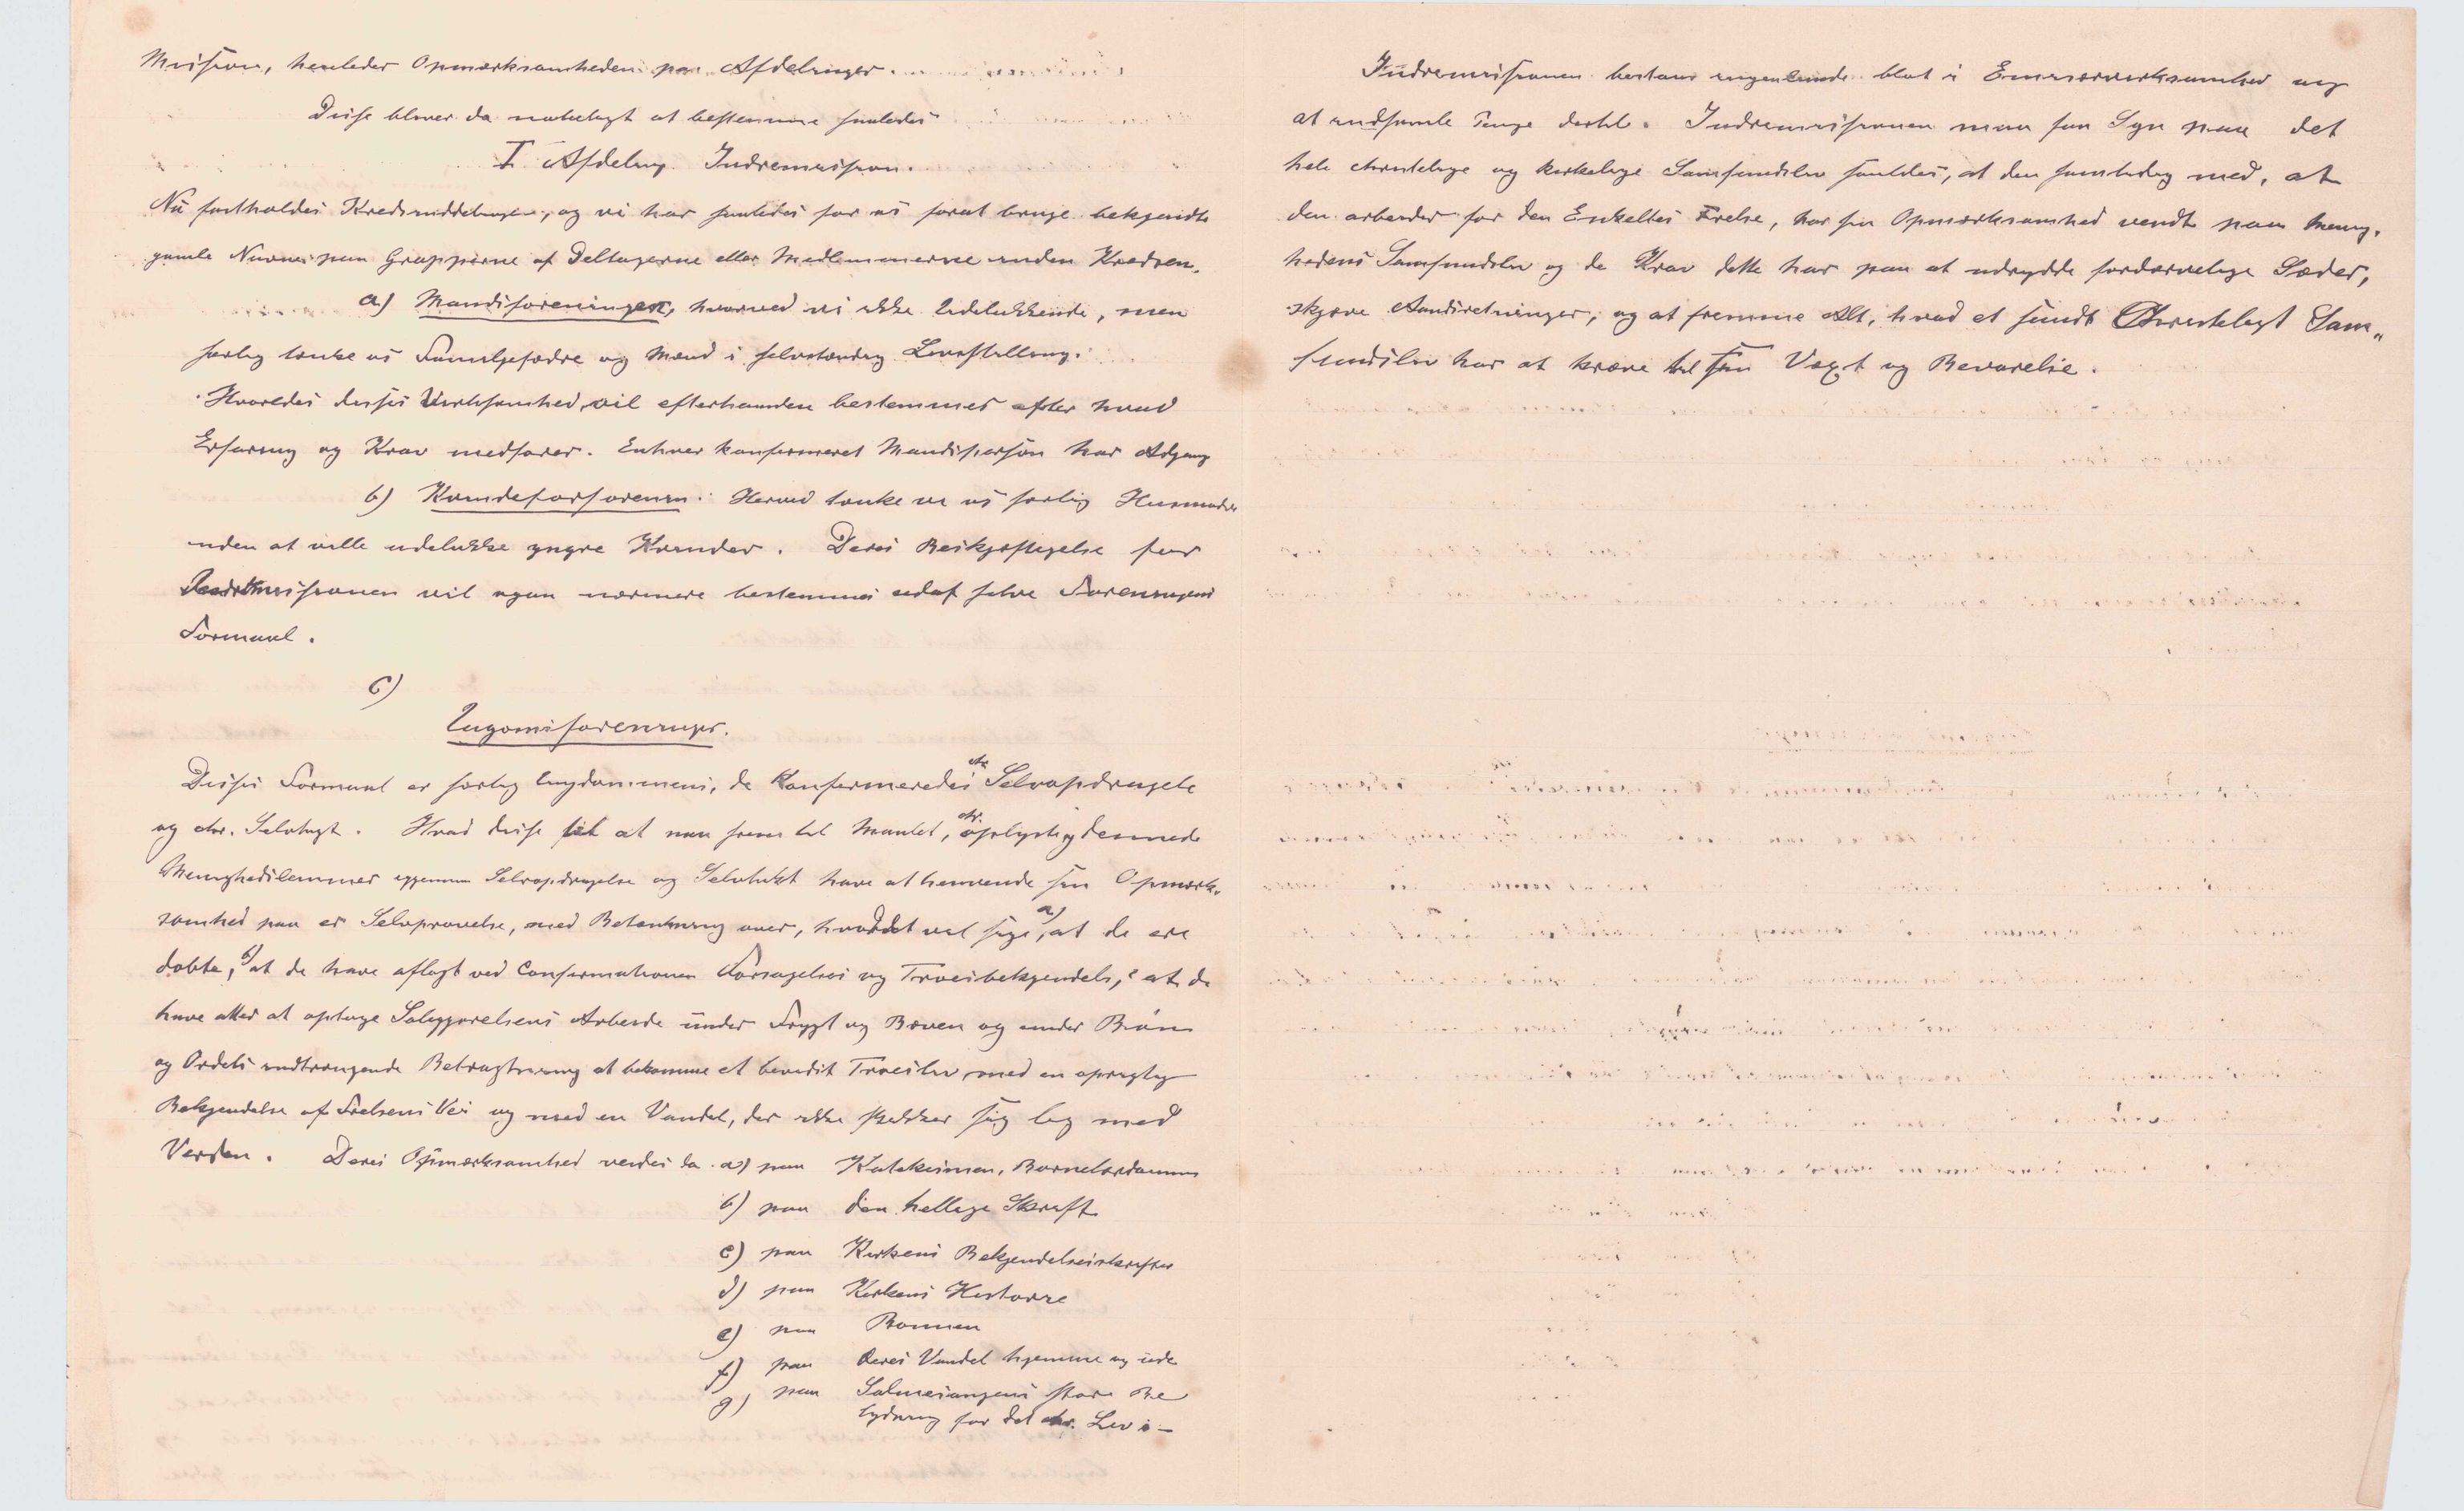 Mission, henleder Opmærksomheden paa Afdelinger.
Disse bliver da naturligt at bestemme saaledes
I Afdeling. Indremission.
Nu fastholdes Kredsinddelingen, og vi har saaledes for os forat bruge bekjendte
gamle Navne paa Grupperne af Deltagerne eller Medlemmerne inden Kredsen.
a) Mandsforeninger, hvorved vi ikke udelukkende, men
særlig tænke os Familjefædre og Mænd i selvstændig Livsstilling.
Hvorledes disses Virksomhed vil efterhaanden bestemmes efter hvad
Erfaring og Krav medfører. Enhver konfirmeret Mandsperson har Adgang
b) Herved tænke vi os særlig Husmødre
uden at ville udelukke yngre Kvinder. Deres Beskjæftigelse for
Indremissionen vil ogsaa nærmere bestemmes udaf selve Foreningens
Formaal.
c)
Ungdomsforeninger.
Disses Formaal er særlig Ungdommens, de Konfirmeredes chr. Selvopdragelse
og chr. Selvtugt. Hvad disse for at naa frem til Maalet, chr. oplyste og dannede
Menighedslemmer igjennem Selvopdragelse og Selvtukt have at henvende sin Opmærk-
somhed paa er Selvprøvelse, med Betænkning over, hvad det vil sige, a) at de ere
døbte, b) at de have aflagt ved Confirmationen Forsagelses og Troesbekjendelse, c at de
have atter at optage Saliggjørelsens Arbeide under Frygt og Bæven og under Bøn
og Ordets indtrængende Betragtning at bekomme et bevidst Troesliv med en oprigtig
Bekjendelse af Frelsens Vei og med en Vandel, der ikke skikker sig lig med
Verden. Deres Opmærksomhed vendes da a) paa Katekismen, Barnelærdommen
b) paa den hellige Skrift
c) paa Kirkens Bekjendelsesskrifter
d) paa Kirkens Historie
e) paa Bønnen
f) paa deres Vandel hjemme og ude
g) paa Salmesangens store Be
tydning for det chr. Liv i -
Indremissionen bestaar ingenlunde blot i Emissærvirksomhed og
at indsamle Penge dertil. Indremissionen maa faa Syn paa det
hele christelige og kirkelige Samfundsliv saaledes, at den samtidig med, at
den arbeider for den Enkeltes Frelse, har sin Opmærksomhed vendt paa Menig-
hedens Samfundsliv og de Krav dette har paa at udrydde fordærvelige Sæder,
skjæve Aandsretninger, og at fremme Alt, hvad et sundt Christeligt Sam-
fundsliv har at kræve til sin Vext og Bevarelse.